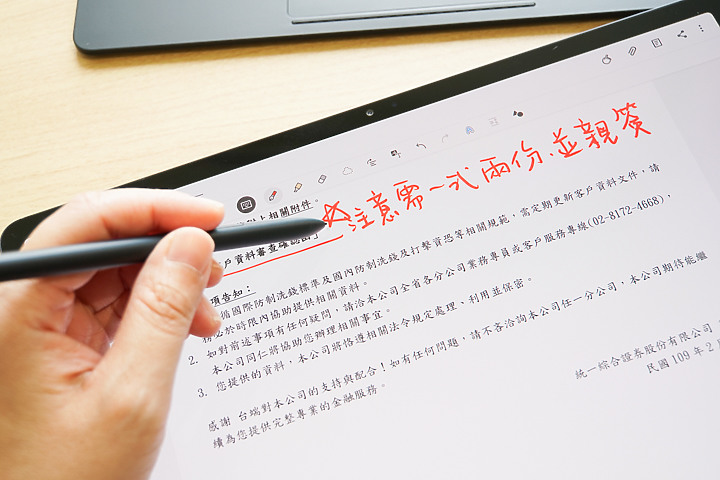 上相關附件。
☆注意需一式兩份、並親簽
戶資料審查確認函」
項告知：
循國際防制洗錢標準及國內防制洗錢及打擊資恐等相關規範，需定期更新客戶資料文件，請
務必於時限內協助提供相關資料。
2. 如對前述事項有任何疑問，請洽本公司全省各分公司業務專員或客戶服務專線(02-8172-4668)，
本公司同仁將協助您辦理相關事宜。
3. 您提供的資料，本公司將恪遵相關法令規定處理、利用並保密。
感謝 台端對本公司的支持與配合！如有任何問題，請不吝洽詢本公司任一分公司，本公司期待能繼
續為您提供完整專業的金融服務。
統一綜合證券股份有限公司
民國 109 年 2 月